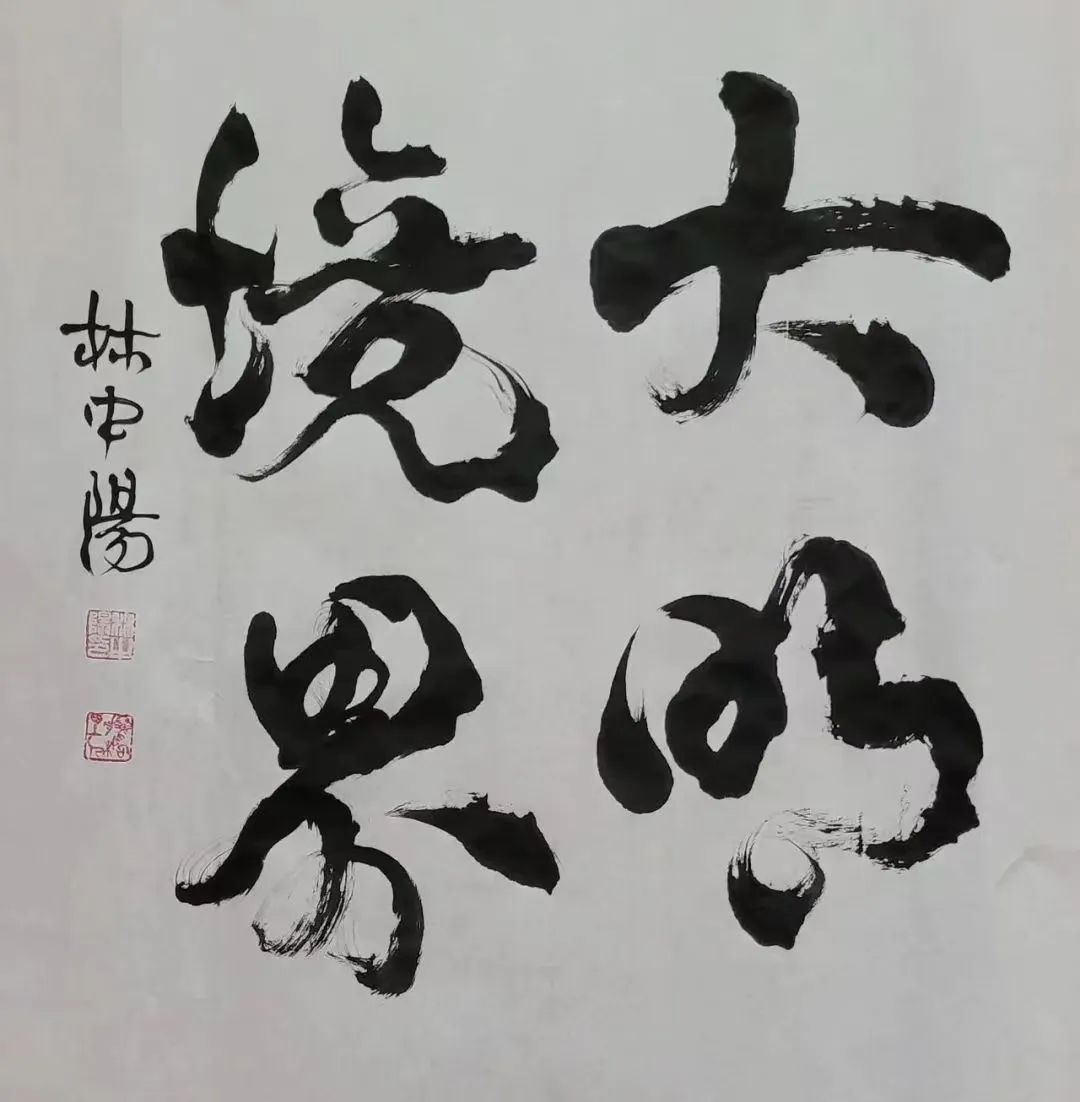 大
境界
林中陽